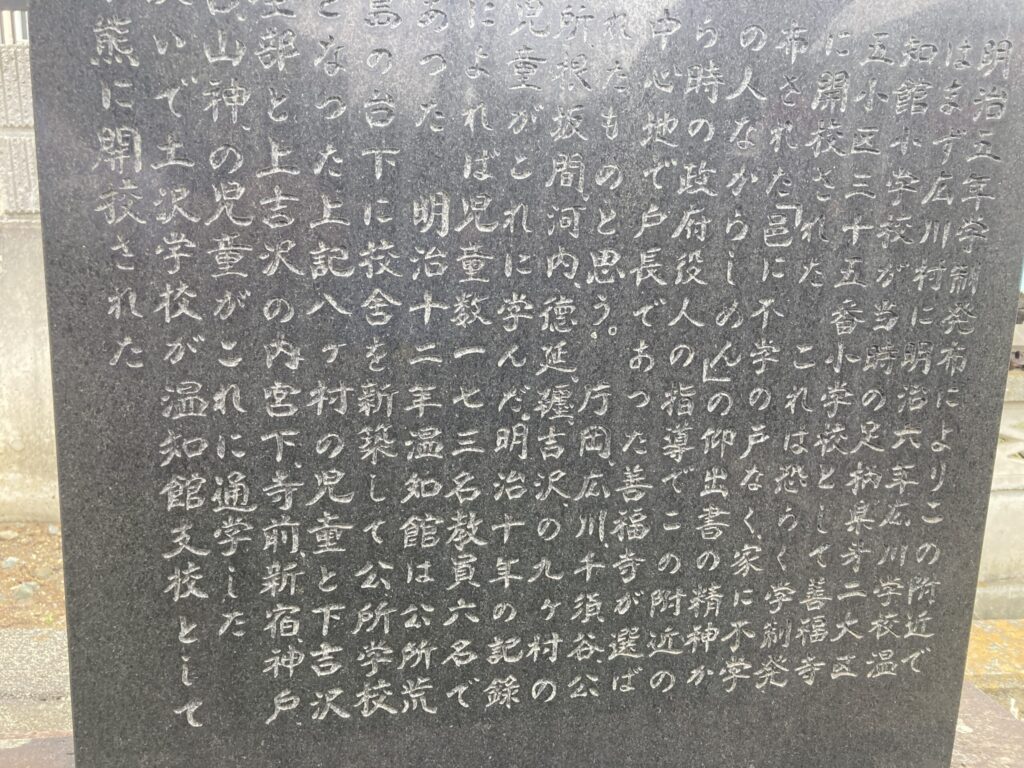 明治五年学制発布によりこの附近で
はまず広川村に明治六年広川学校温
知館小学校が当時の足柄県才二大区
五小区三十五番小学校として善福寺
に開校された これは恐らく学制発
布された「邑に不学の戸なく、家に不学
の人なからしめん」の仰出書の精神か
ら時の政府役人の指導でこの附近の
中心地で戸長であった善福寺が選ば
れたものと思う。 片岡、広川、千須谷、公
所、根坂間、河内、徳延、纒、吉沢、の九ヶ村の
児童がこれに学んだ、明治十年の記録
によれば児童数一七三名教員六名で
あつた 明治十二年温知館は公所荒
の台下に校舎を新築して公所学校
となつた上記八ヶ村の児童と下吉沢
部と上吉沢の内宮下、寺前、新宿、神戸、
山神、の児童がこれに通学した
いで土沢学校が温知館支校として
熊に開校された